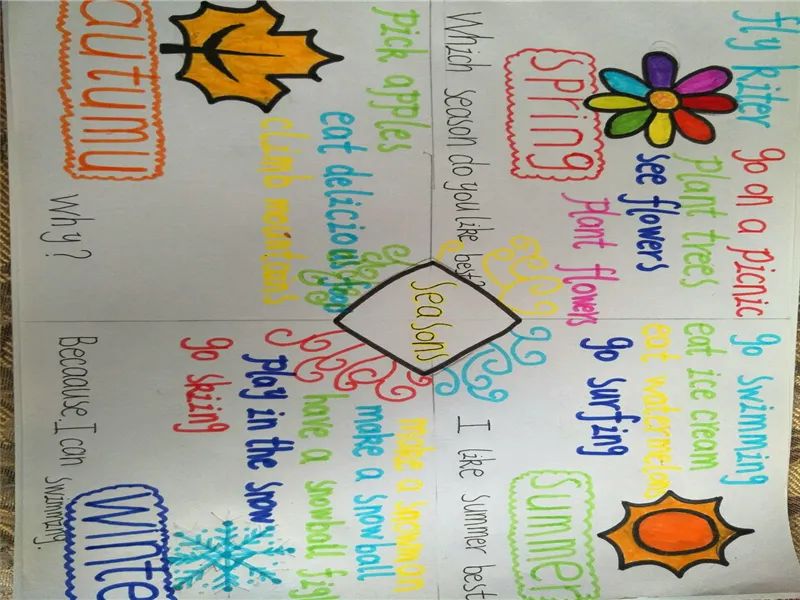 fly kiter
go on a picnic
plant trees
see flowers
plant flowers
spring
go swimming
eat ice cream
eat watermelons
go surfing
summer
Which season do you like best?
I like summer best
seasons
pick apples
eat delicious food
climb mountions
autumu
Why?
make a snowmon
make a snowball
have a snowball fig
play in the snow
go skizing
winte
Becaause I can swimming.